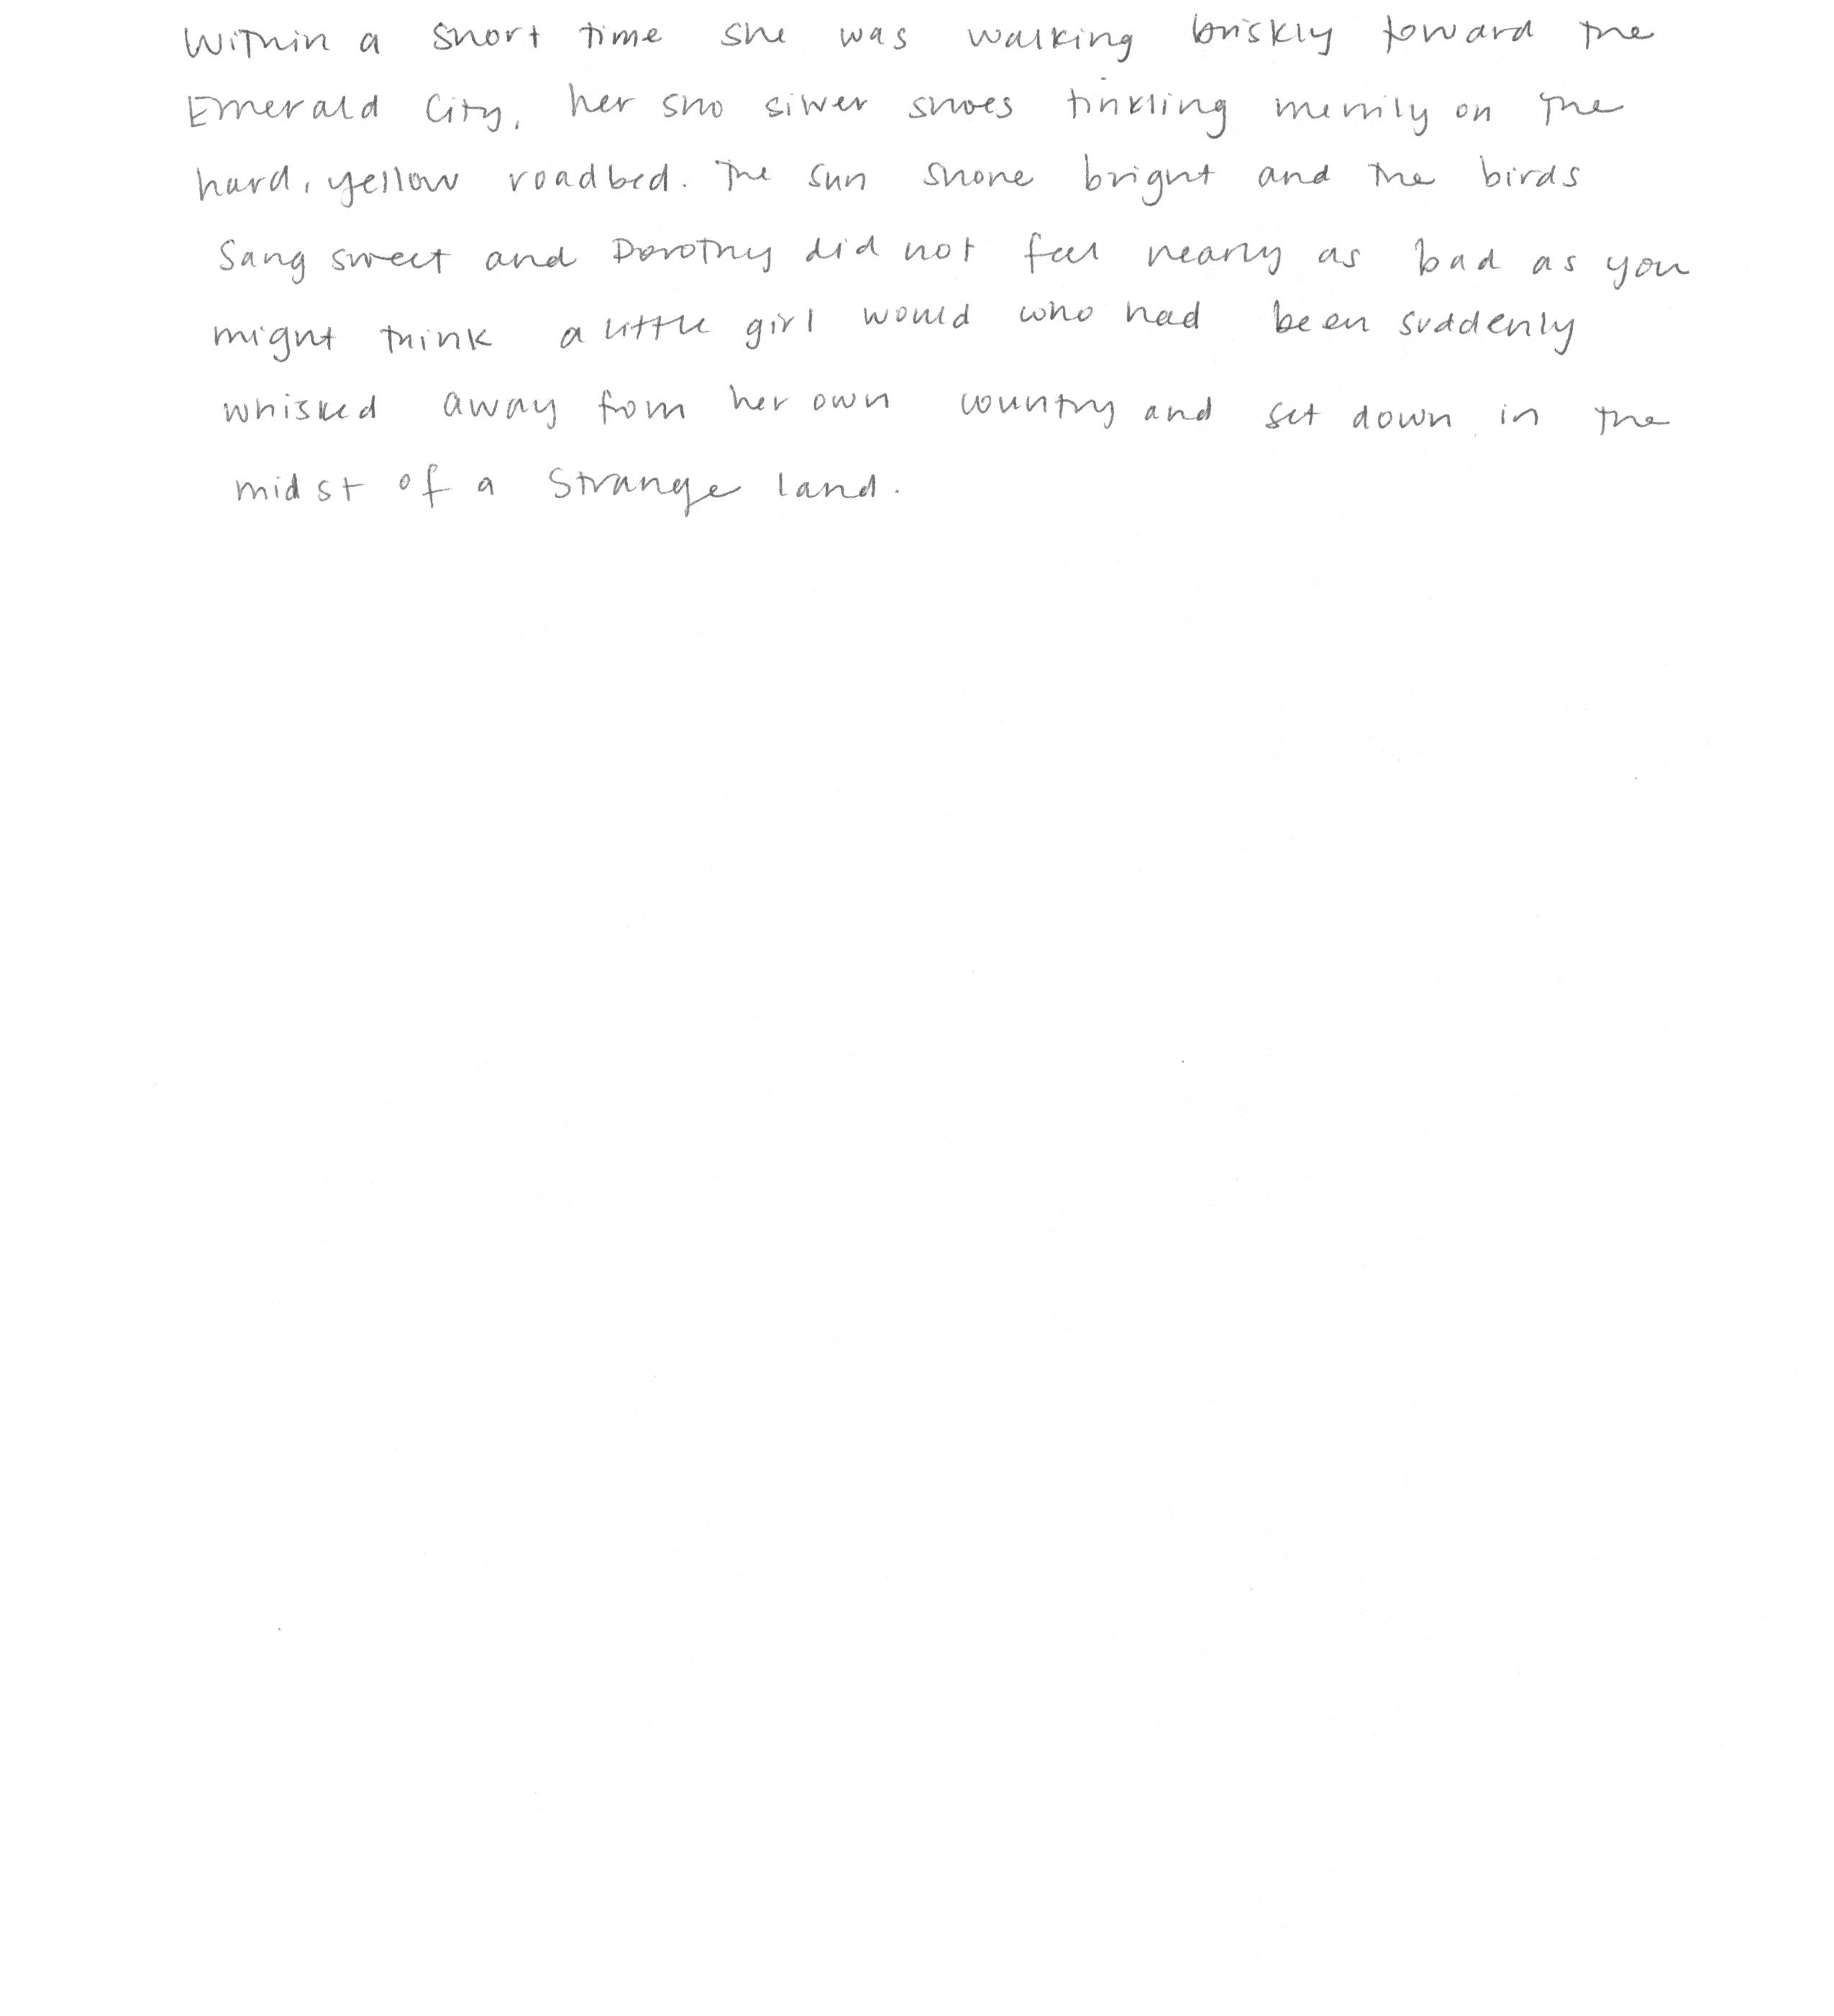 Within a short time she was walking briskly toward the
Emerald City, her sho silver shoes tinkling merrily on the
hard, yellow roadbed. The sun shone bright and the birds
Sang sweet and Dorothy did not feel nearly as bad as you
might think a little girl would who had been suddenly
whisked away from her own country and set down in the
midst of a strange land.